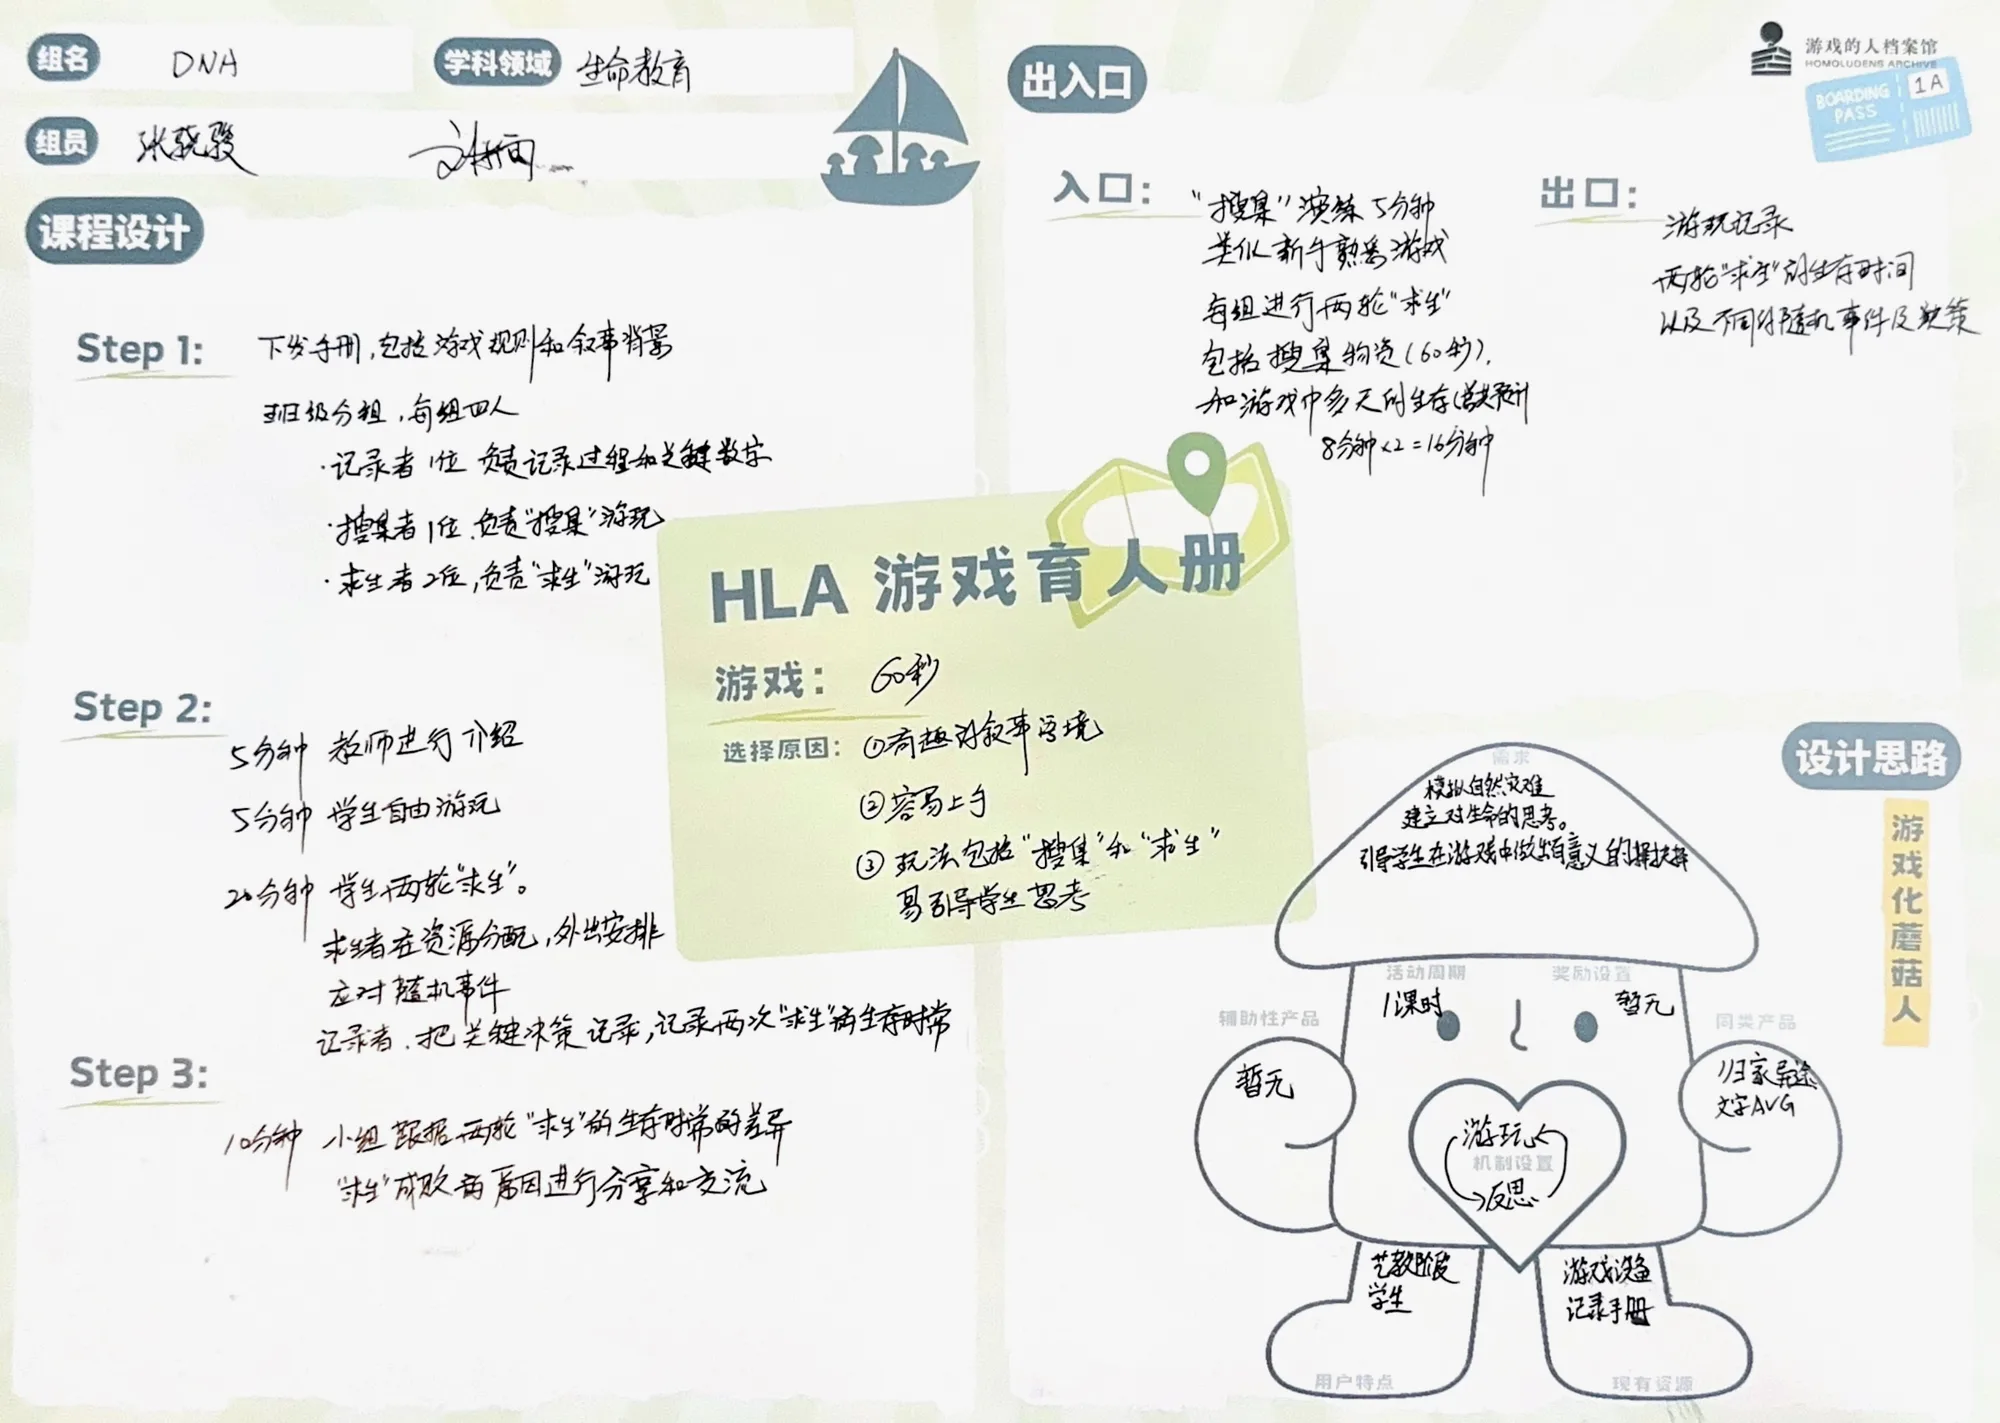 组名 DNA
学科领域 生命教育
组员 张骁骏
课程设计
Step 1:
下发手册,包括游戏规则和叙事背景
班级分组,每组四人
·记录者1位 负责记录过程和关键数字
·搜集者1位.负责"搜集"游玩
·求生者2位,负责"求生"游玩
Step 2:
5分钟 教师进行介绍
5分钟 学生自由游玩
20分钟 学生两轮"求生"。
求生者在资源分配,外出安排
应对随机事件
记录者.把关键决策记录,记录两次"求生"的生存时常
Step 3:
10分钟 小组跟据两轮"求生"的生存时常的差异
"求生"成败的原因进行分享和交流
HLA 游戏育人册
游戏: 60秒
选择原因: ①有趣的叙事写境
②容易上手
③玩法包括"搜集"和"求生"
易引导学生思考
出入口
游戏的人档案馆
HOMOLUDENS ARCHIVE
BOARDING
PASS
1A
入口:
"搜集"演练5分钟
类似新手熟悉游戏
每组进行两轮"求生"
包括搜集物资(60秒),
和游戏中多天的生存(总共预计
8分钟×2=16分钟
出口:
游玩记录
两轮"求生"的生存时间
以及不同的随机事件及决策
设计思路
游戏化蘑菇人
需求
模拟自然灾难
建立对生命的思考。
引导学生在游戏中做出有意义的择抉择
活动周期
1课时
奖励设置
暂无
辅助性产品
暂无
同类产品
归家异途
文字AVG
游玩
机制设置
反思
艺教阶段
学生
用户特点
游戏设备
记录手册
现有资源